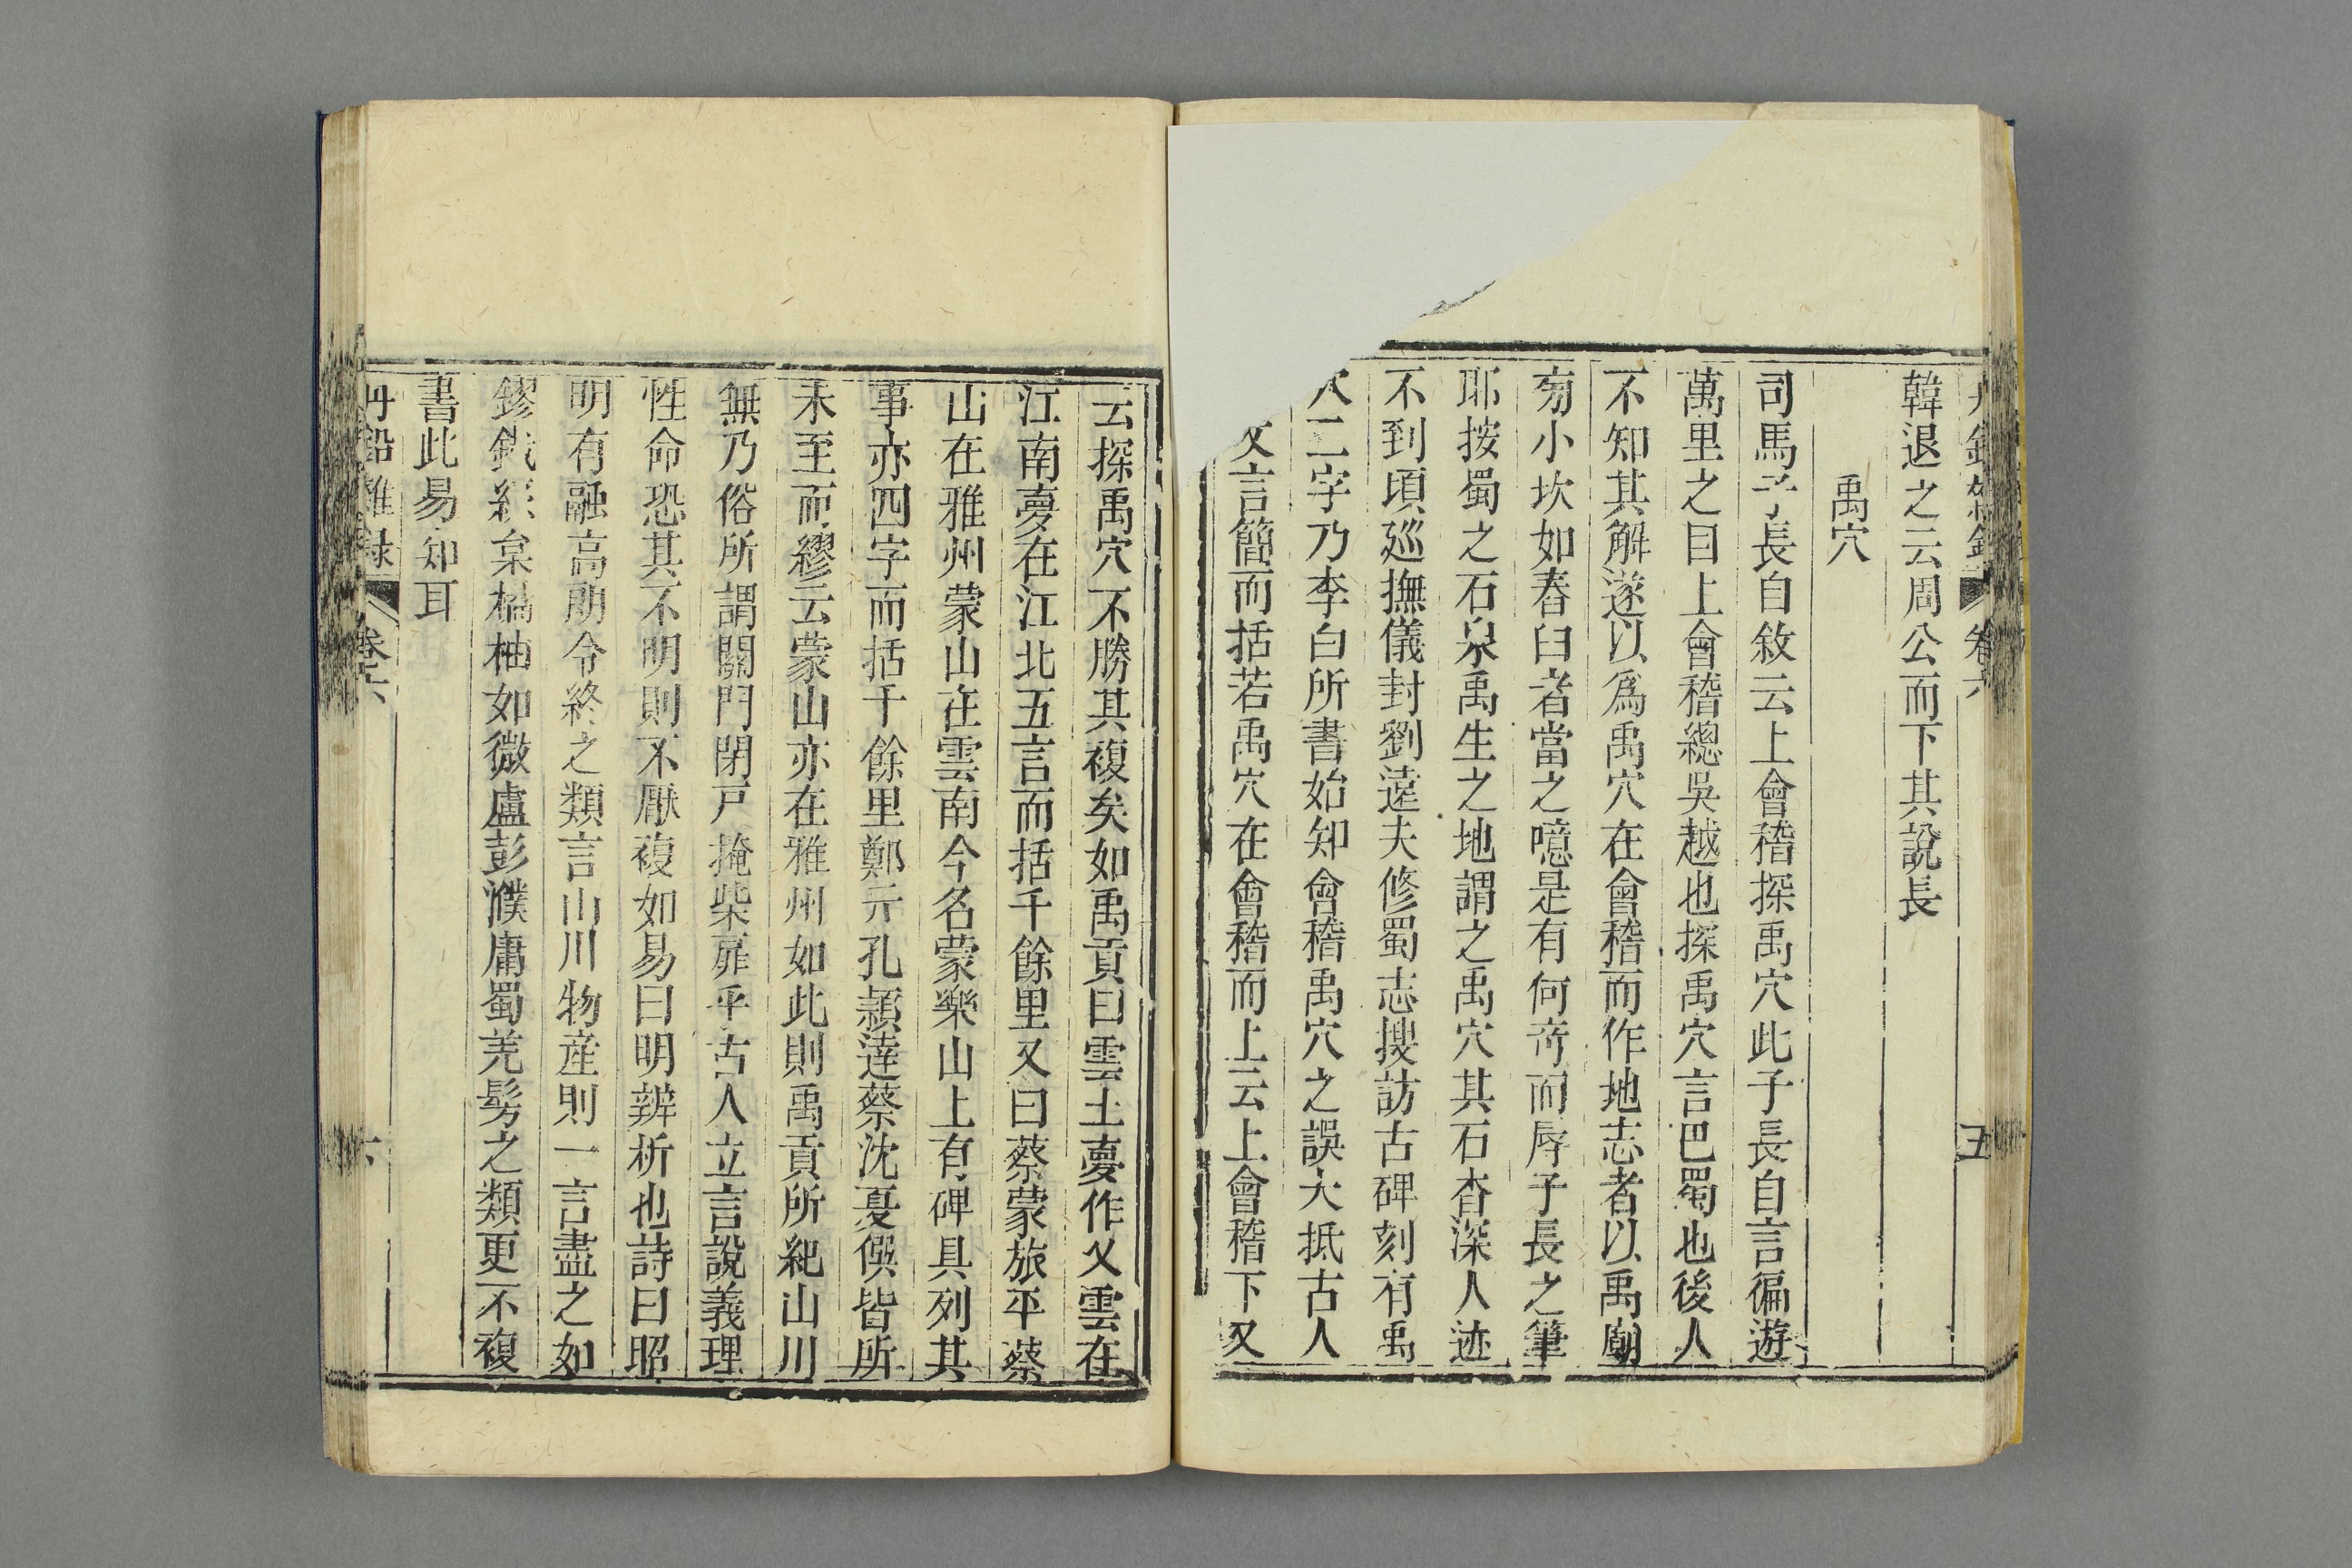 韓退之云周公而下其說長
禹穴
司馬子長自敘云上會稽探禹穴此子長自言徧遊
萬里之目上會稽總吳越也探禹穴言巴蜀也後人
不知其解遂以爲禹穴在會稽而作地志者以禹廟
旁小坎如舂臼者當之噫是有何奇而辱子長之筆
耶按蜀之石泉禹生之地謂之禹穴其石杳深人迹
不到頃廵撫儀封劉遠夫修蜀志搜訪古碑刻有禹
穴二字乃李白所書始知會稽禹穴之誤大抵古人
文言簡而括若禹穴在會稽而上云上會稽下又
云探禹穴不勝其複矣如禹貢曰雲土夢作乂雲在
江南夢在江北五言而括千餘里又曰蔡蒙旅平蔡
山在雅州蒙山在雲南今名蒙樂山上有碑具列其
事亦四字而括千餘里鄭亓孔頴逹蔡沈夏僎皆所
未至而繆云蒙山亦在雅州如此則禹貢所紀山川
無乃俗所謂關門閉戸掩柴扉乎古人立言說義理
性命恐其不明則不厭複如易曰明辨析也詩曰昭
明有融高朗令終之類言山川物産則一言盡之如
鏐鐵絲枲橘柚如微盧彭濮庸蜀羌髳之類更不複
書此易知耳
丹鉛雜録 卷六 六